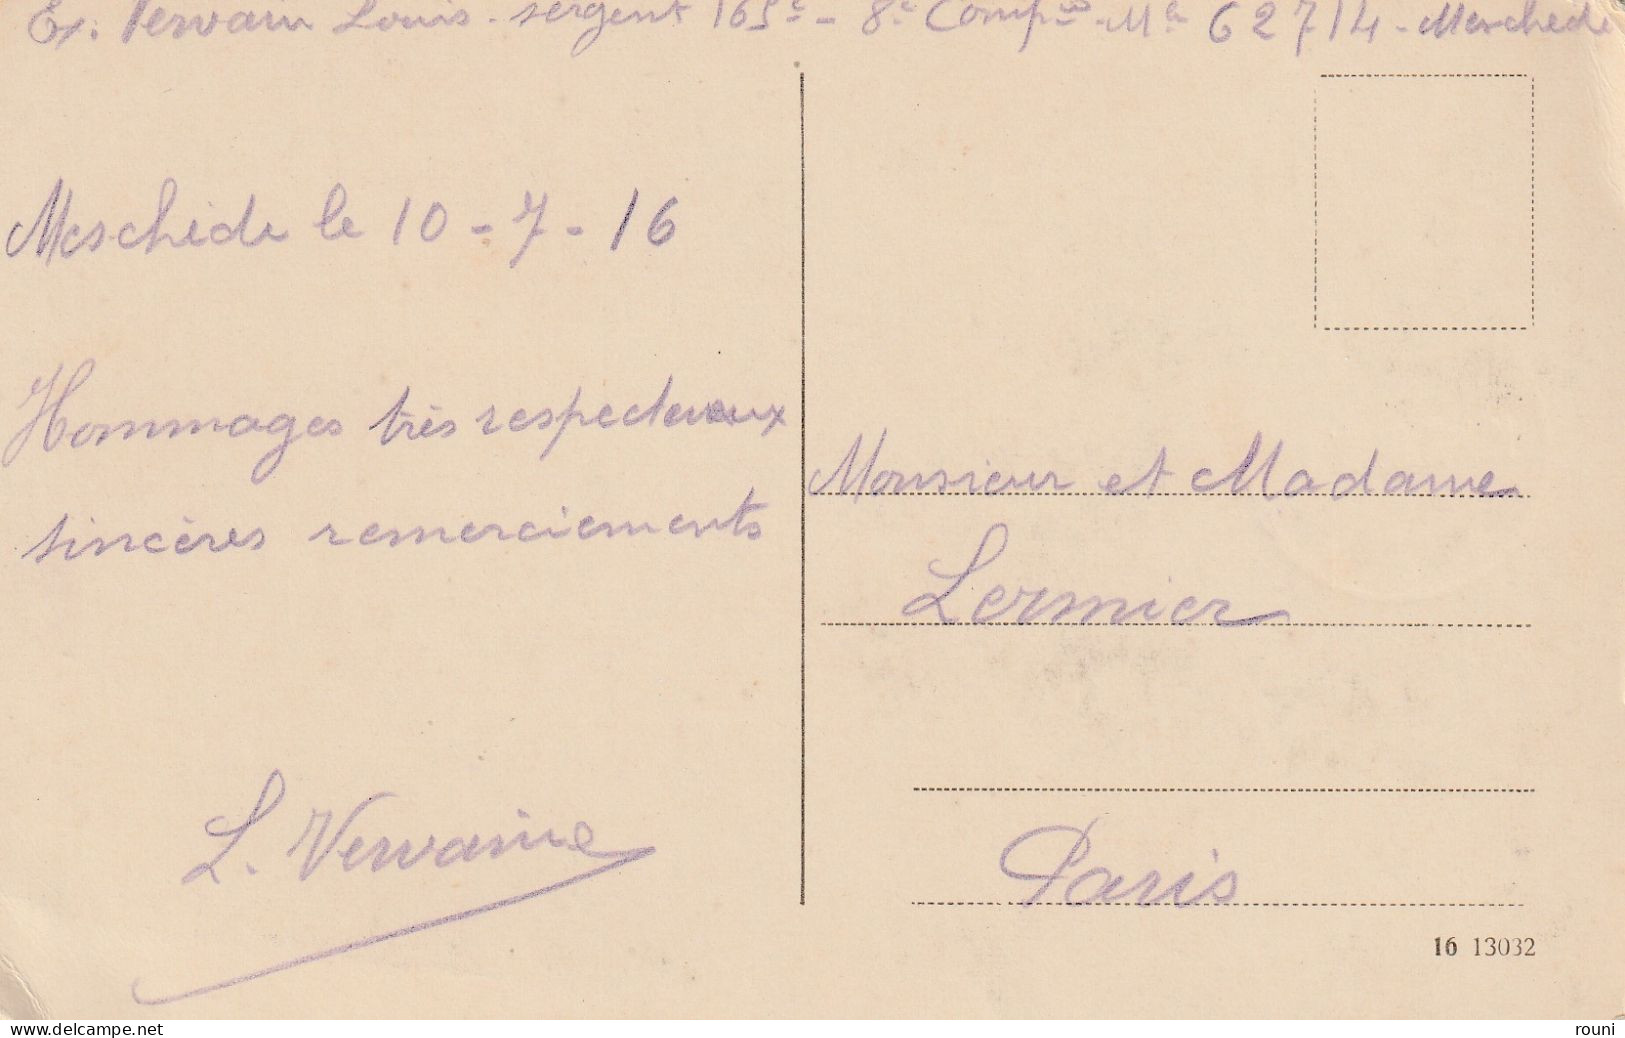 Ex. Vervain Louis - sergent 165e - 8e Compie - Me 62714 - Meschede
Meschede le 10 - 7 - 16
Hommages très respectueux
sincères remerciements
L. Vervaine
Monsieur et Madame
Lermier
Paris
16 13032
www.delcampe.net
rouni